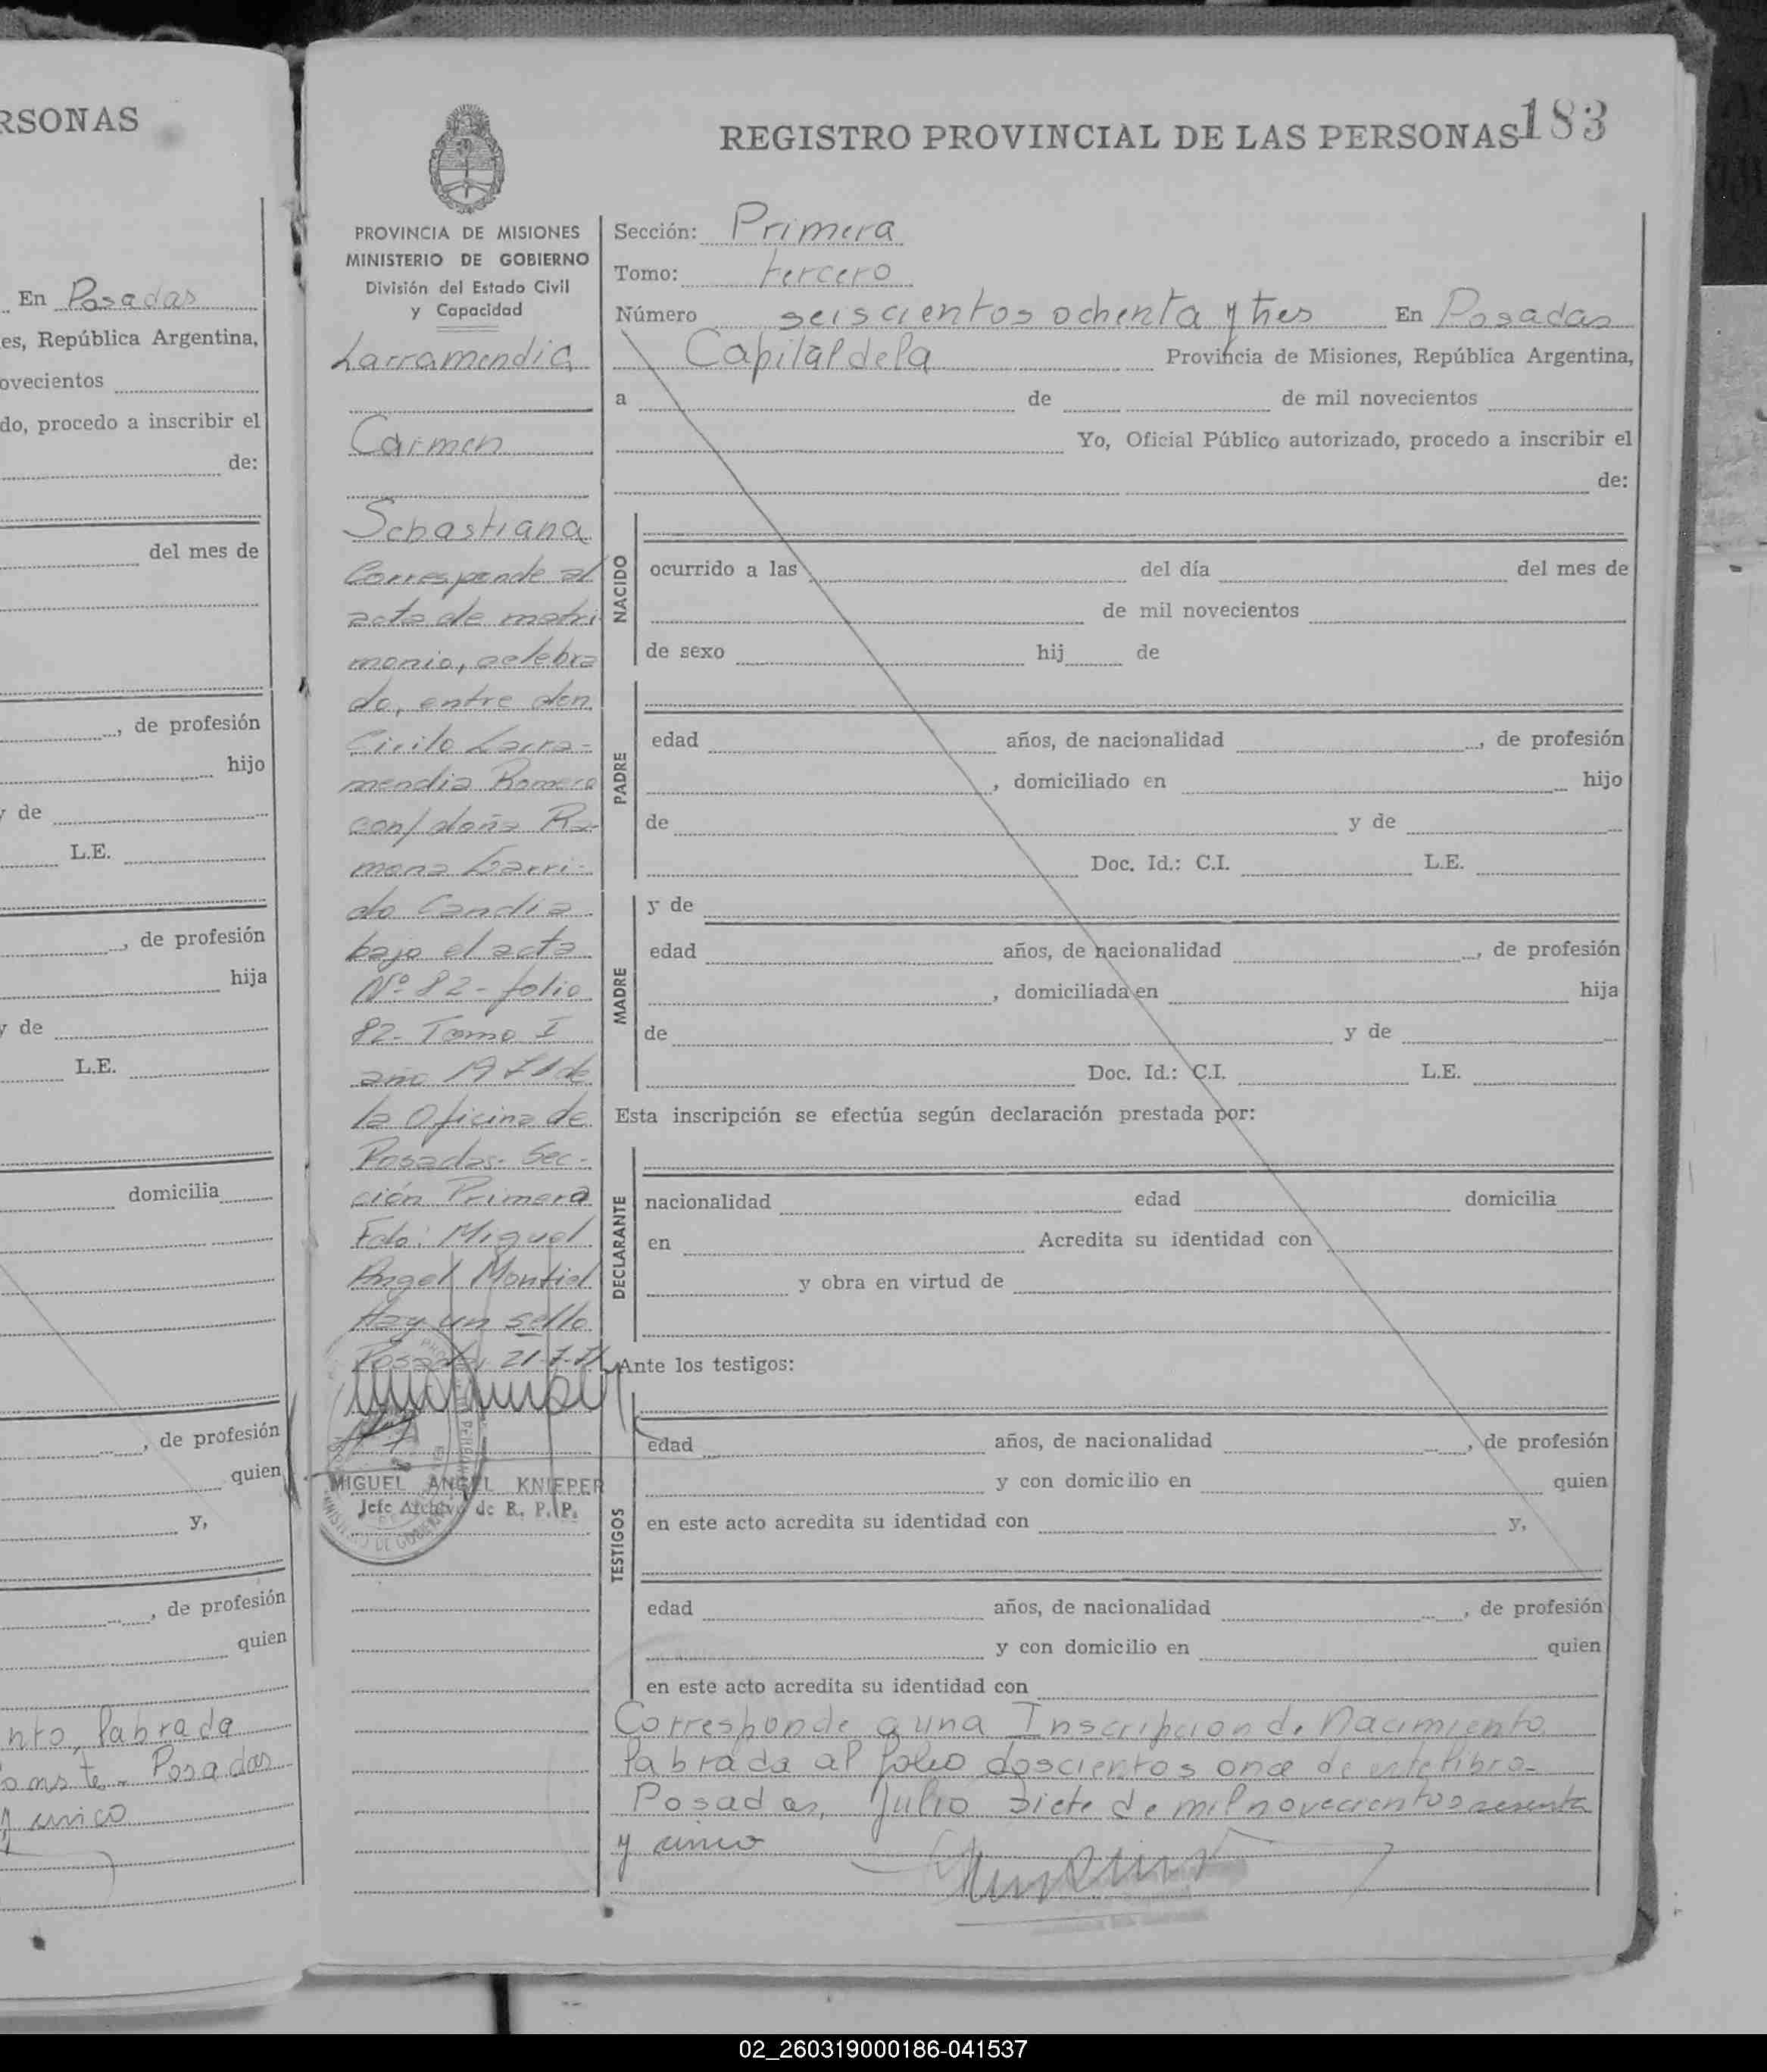 RSONAS
En Posadas
es, República Argentina,
ovecientos
do, procedo a inscribir el
de:
del mes de
, de profesión
hijo
y de
L.E.
, de profesión
hija
y de
L.E.
domicilia
, de profesión
quien
y,
, de profesión
quien
nto, labrada
Posadas
y cinco
183
REGISTRO PROVINCIAL DE LAS PERSONAS
PROVINCIA DE MISIONES
MINISTERIO DE GOBIERNO
División del Estado Civil
y Capacidad
Larramendia
Carmen
Sebastiana
Corresponde al
acta de matri
monio, celebra
do, entre don
Cirilo Larra-
mendia Romero
con/ doña Ra-
mona Garri-
do Candia
bajo el acta
Nº 82- folio
82- Tomo I
año 1971 de
la Oficina de
Posadas- Sec-
ción Primera
Fdo: Miguel
Angel Montiel
Hay un sello
Posadas, 21-7-
MIGUEL ANGEL KNIEPER
Jefe Archivo de R. P. P.
Sección: Primera
Tomo: tercero
Número seiscientos ochenta y tres En Posadas
Capital de la Provincia de Misiones, República Argentina,
a de de mil novecientos
Yo, Oficial Público autorizado, procedo a inscribir el
de:
NACIDO
ocurrido a las del día del mes de
de mil novecientos
de sexo hij de
PADRE
edad años, de nacionalidad , de profesión
, domiciliado en hijo
de y de
Doc. Id.: C.I. L.E.
MADRE
y de
edad años, de nacionalidad , de profesión
, domiciliada en hija
de y de
Doc. Id.: C.I. L.E.
Esta inscripción se efectúa según declaración prestada por:
DECLARANTE
nacionalidad edad domicilia
en Acredita su identidad con
y obra en virtud de
Ante los testigos:
TESTIGOS
edad años, de nacionalidad , de profesión
y con domicilio en quien
en este acto acredita su identidad con y,
edad años, de nacionalidad , de profesión
y con domicilio en quien
en este acto acredita su identidad con
Corresponde a una Inscripcion de Nacimiento
labrada al folio doscientos once de este libro-
Posadas, Julio siete de mil novecientos sesenta
y cinco
02_260319000186-041537